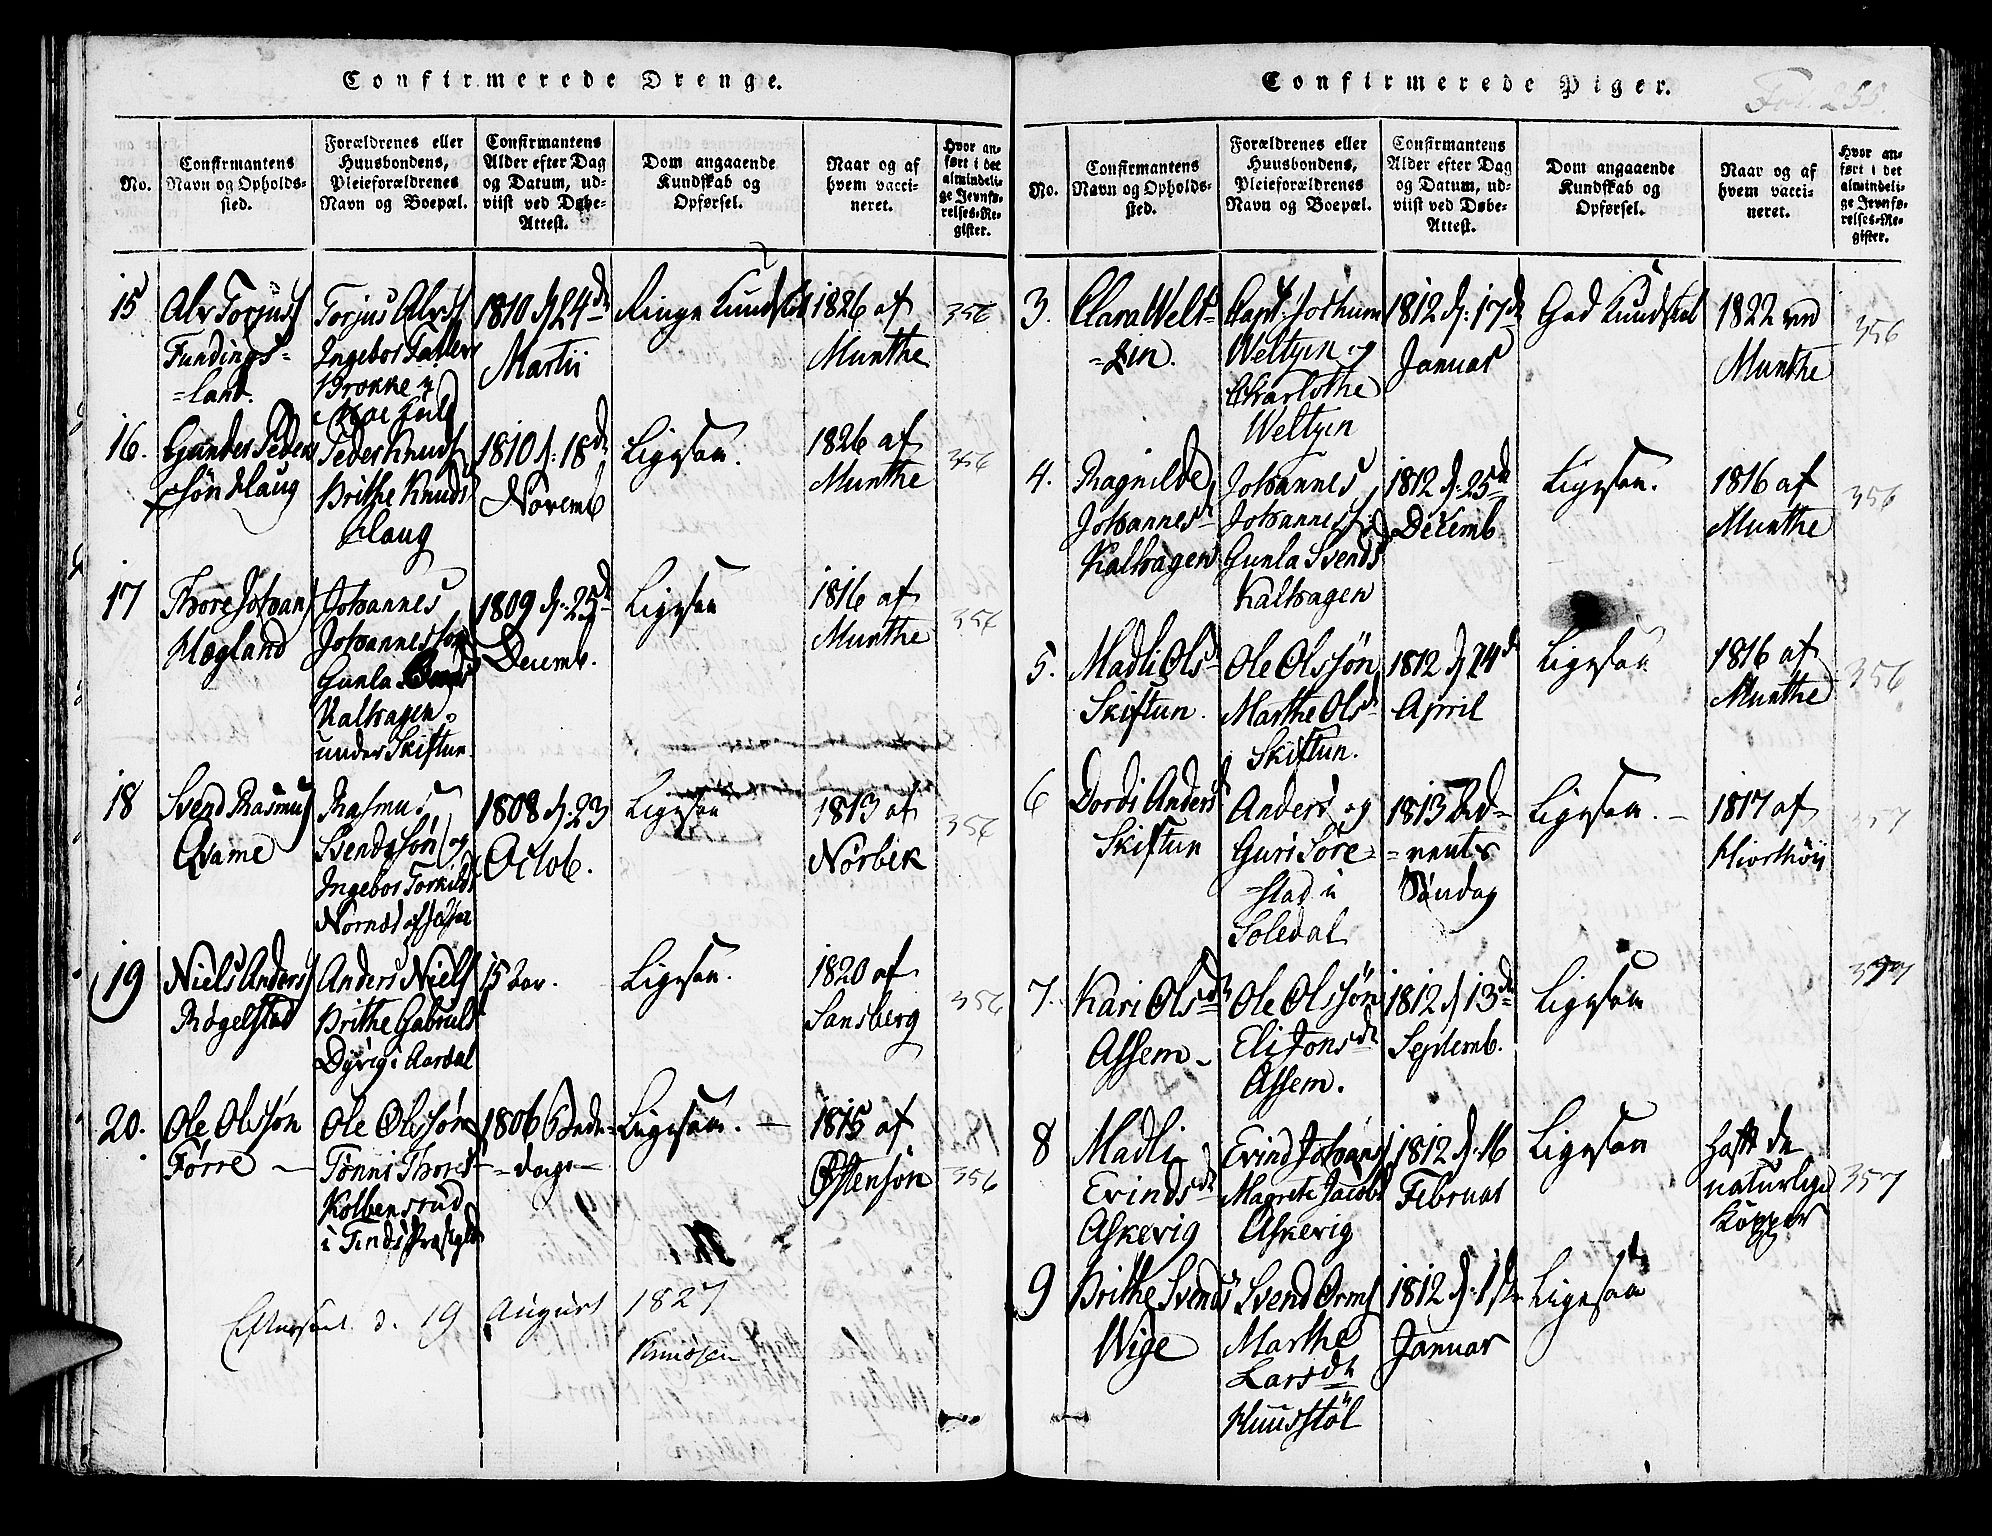 Confirmerede Drenge.
No.
Confirmantens
Navn og Opholds-
sted.
Forældrenes eller
Huusbondens,
Pleieforældrenes
Navn og Boepæl.
Confirmantens
Alder efter Dag
og Datum, ud-
viist ved Døbe-
Attest.
Dom angaaende
Kundskab og
Opførsel.
Naar og af
hvem vacci-
neret.
Hvor an-
ført i det
almindeli-
ge Jevnfø-
relses-Re-
gister.
15
Alv Torjus
Fundings=
=land.
Torjus Alvs
Ingebor
Brokke i
1810 d 24de
Martii
Ringe Kundskab
1826 af
Munthe
356
16.
Gunder Peder
søn Haug
Peder Knuds
Brithe Knuds
Haug
1810 d: 18de
Novemb
Ligesaa.
1826 af
Munthe
356
17
Thore Johan
Hægland
Johannes
Johannessøn
Gunla
Kalhagen
under Skiftun.
1809 d: 25de
Decemb.
Ligesaa
1816 af
Munthe
356
18
Svend Rasmus
Qvame
Rasmus
Svendssøn og
Ingebor Torkilds
1808 d: 23
Octob.
Ligesaa
1813 af
Norbek
356
19
Niels Anders
Røgelstad
Anders Niels
Brithe Gabriels
Dyrvig i Aardal
15 aar.
Ligesaa.
1820 af
Sansberg
356
20.
Ole Olssøn
Førre
Ole Olssøn
Tønni Thores
Kolbensrud
i Tinds Præstgld
1806 Bede-
=dags
Ligesaa.
1815 af
Østensøn
356
Efterseet d. 19 August 1827
Knudsen
Confirmerede Piger.
Fol. 255.
No.
Confirmantens
Navn og Opholds-
sted.
Forældrenes eller
Huusbondens,
Pleieforældrenes
Navn og Boepæl.
Confirmantens
Alder efter Dag
og Datum, ud-
viist ved Døbe-
Attest.
Dom angaaende
Kundskab og
Opførsel.
Naar og af
hvem vacci-
neret.
Hvor an-
ført i det
almindeli-
ge Jevnfø-
relses-Re-
gister.
3.
Clara Welt-
=zin.
Capt: Jochum
Weltzin og
Charlothe
Weltzin
1812 d: 17de
Januar
God Kundskab
1822
Munthe
356
4.
Ragnilde
Johannesd
Kalhagen
Johannes
Johannes
Gunla Svends
Kalhagen
1812 d: 25de
Decemb
Ligesaa.
1816 af
Munthe
356
5.
Madli Olsd
Skiftun.
Ole Olssøn
Marthe Olsd
Skiftun.
1812 d 24de
April
Ligesaa
1816 af
Munthe
356
6
Dordi Anders
Skiftun
Anders og
Guri Søre=
stad i
Soledal
1813 Ad=
=vents
Søndag
Ligesaa.
1817 af
Hiorthøy
357
7.
Kari Olsdt
Assem
Ole Olssøn
Eli Jonsdt
Assem.
1812 d 13de
Septemb.
Ligesaa
357
8
Madli
Evindsdt
Askevig
Evind Johans
Magrete Jacobs
Askevig
1812 d: 16
Februar
Ligesaa
haft de
naturlige
Kopper
357
9
Brithe Svends
Wige
Svend Orms
Marthe
Larsdt
Huusstøl
1812 d: 1ste
Januar
Ligesaa